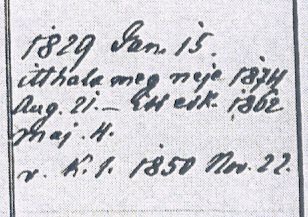 1829 Jan. 15.
itt hala meg neje 1874
Aug. 21. – esk. 1862
Maj. 4.
v. K. 1. 1850 Nov. 22.